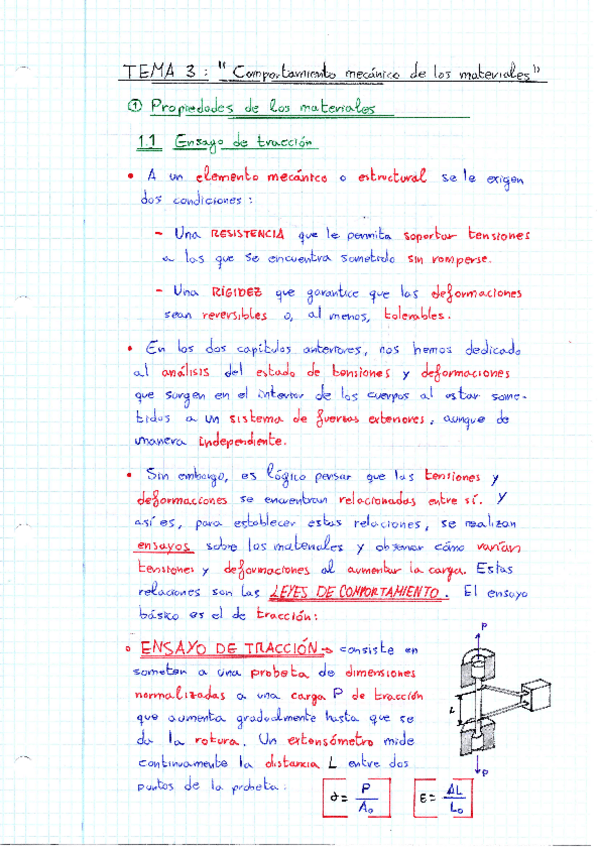 TEMA 3: "Comportamiento mecánico de los materiales"
① Propiedades de los materiales
1.1 Ensayo de tracción
• A un elemento mecánico o estructural se le exigen
dos condiciones:
- Una RESISTENCIA que le permita soportar tensiones
a las que se encuentra sometido sin romperse.
- Una RIGIDEZ que garantice que las deformaciones
sean reversibles o, al menos, tolerables.
• En los dos capítulos anteriores, nos hemos dedicado
al análisis del estado de tensiones y deformaciones
que surgen en el interior de los cuerpos al estar some-
tidos a un sistema de fuerzas exteriores, aunque de
manera independiente.
• Sin embargo, es lógico pensar que las tensiones y
deformaciones se encuentran relacionadas entre sí. Y
así es, para establecer estas relaciones, se realizan
ensayos sobre los materiales y observar cómo varían
tensiones y deformaciones al aumentar la carga. Estas
relaciones son las LEYES DE COMPORTAMIENTO. El ensayo
básico es el de tracción:
• ENSAYO DE TRACCIÓN → consiste en
someter a una probeta de dimensiones
normalizadas a una carga P de tracción
que aumenta gradualmente hasta que se
da la rotura. Un extensómetro mide
continuamente la distancia L entre dos
puntos de la probeta:
σ = P / A₀
ε = ΔL / L₀
P
L
P